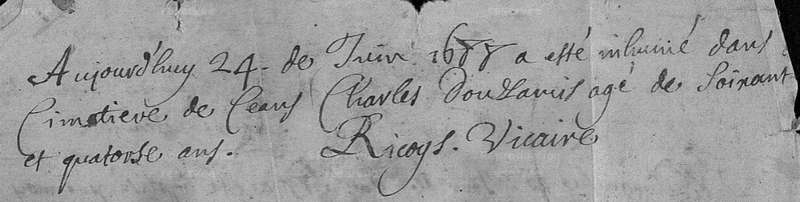 Aujourd'huy 24. de Juin 1688 a esté inhumé dans
Cimetiere de Ceans Charles Douzamis agé de Soixant
et quatorse ans. Ricoys. Vicaire